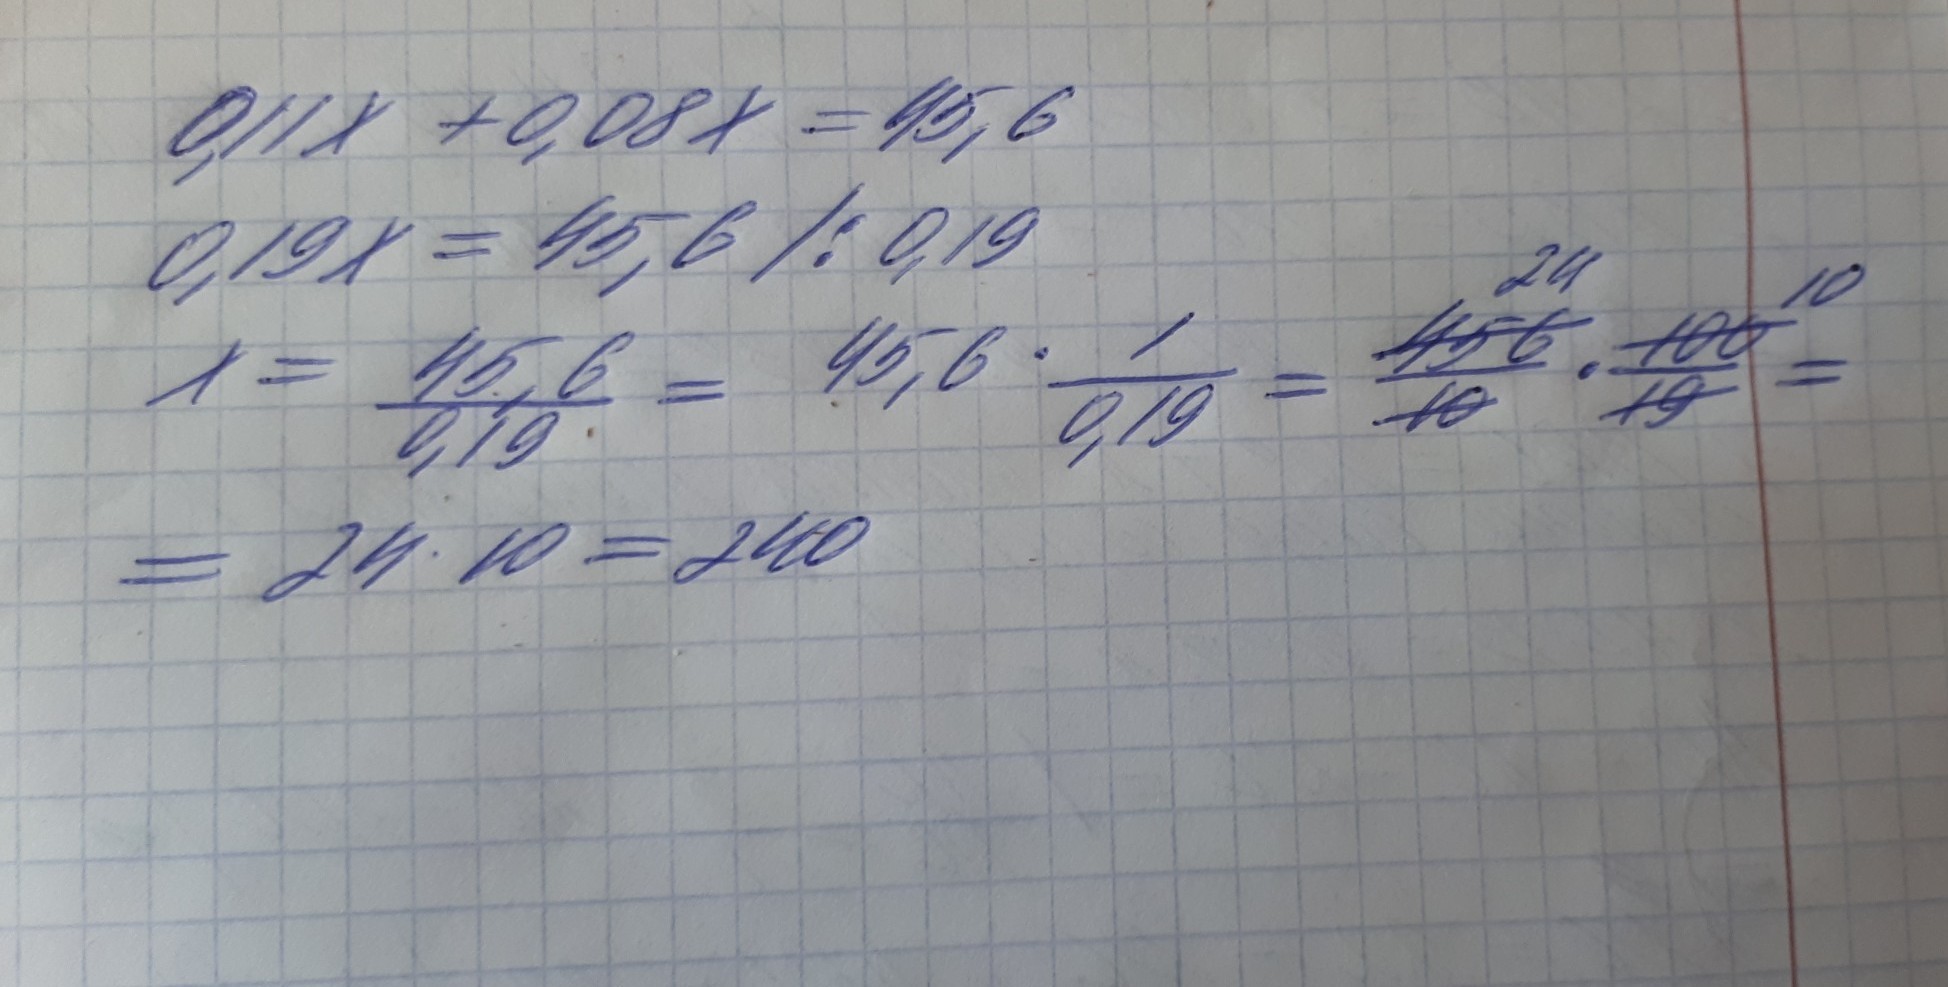 0,11x + 0,08x = 45,6
0,19x = 45,6 /: 0,19
x = 45,6/0,19 = 45,6 · 1/0,19 = 456/10 · 100/19 = 24 10
= 24 · 10 = 240